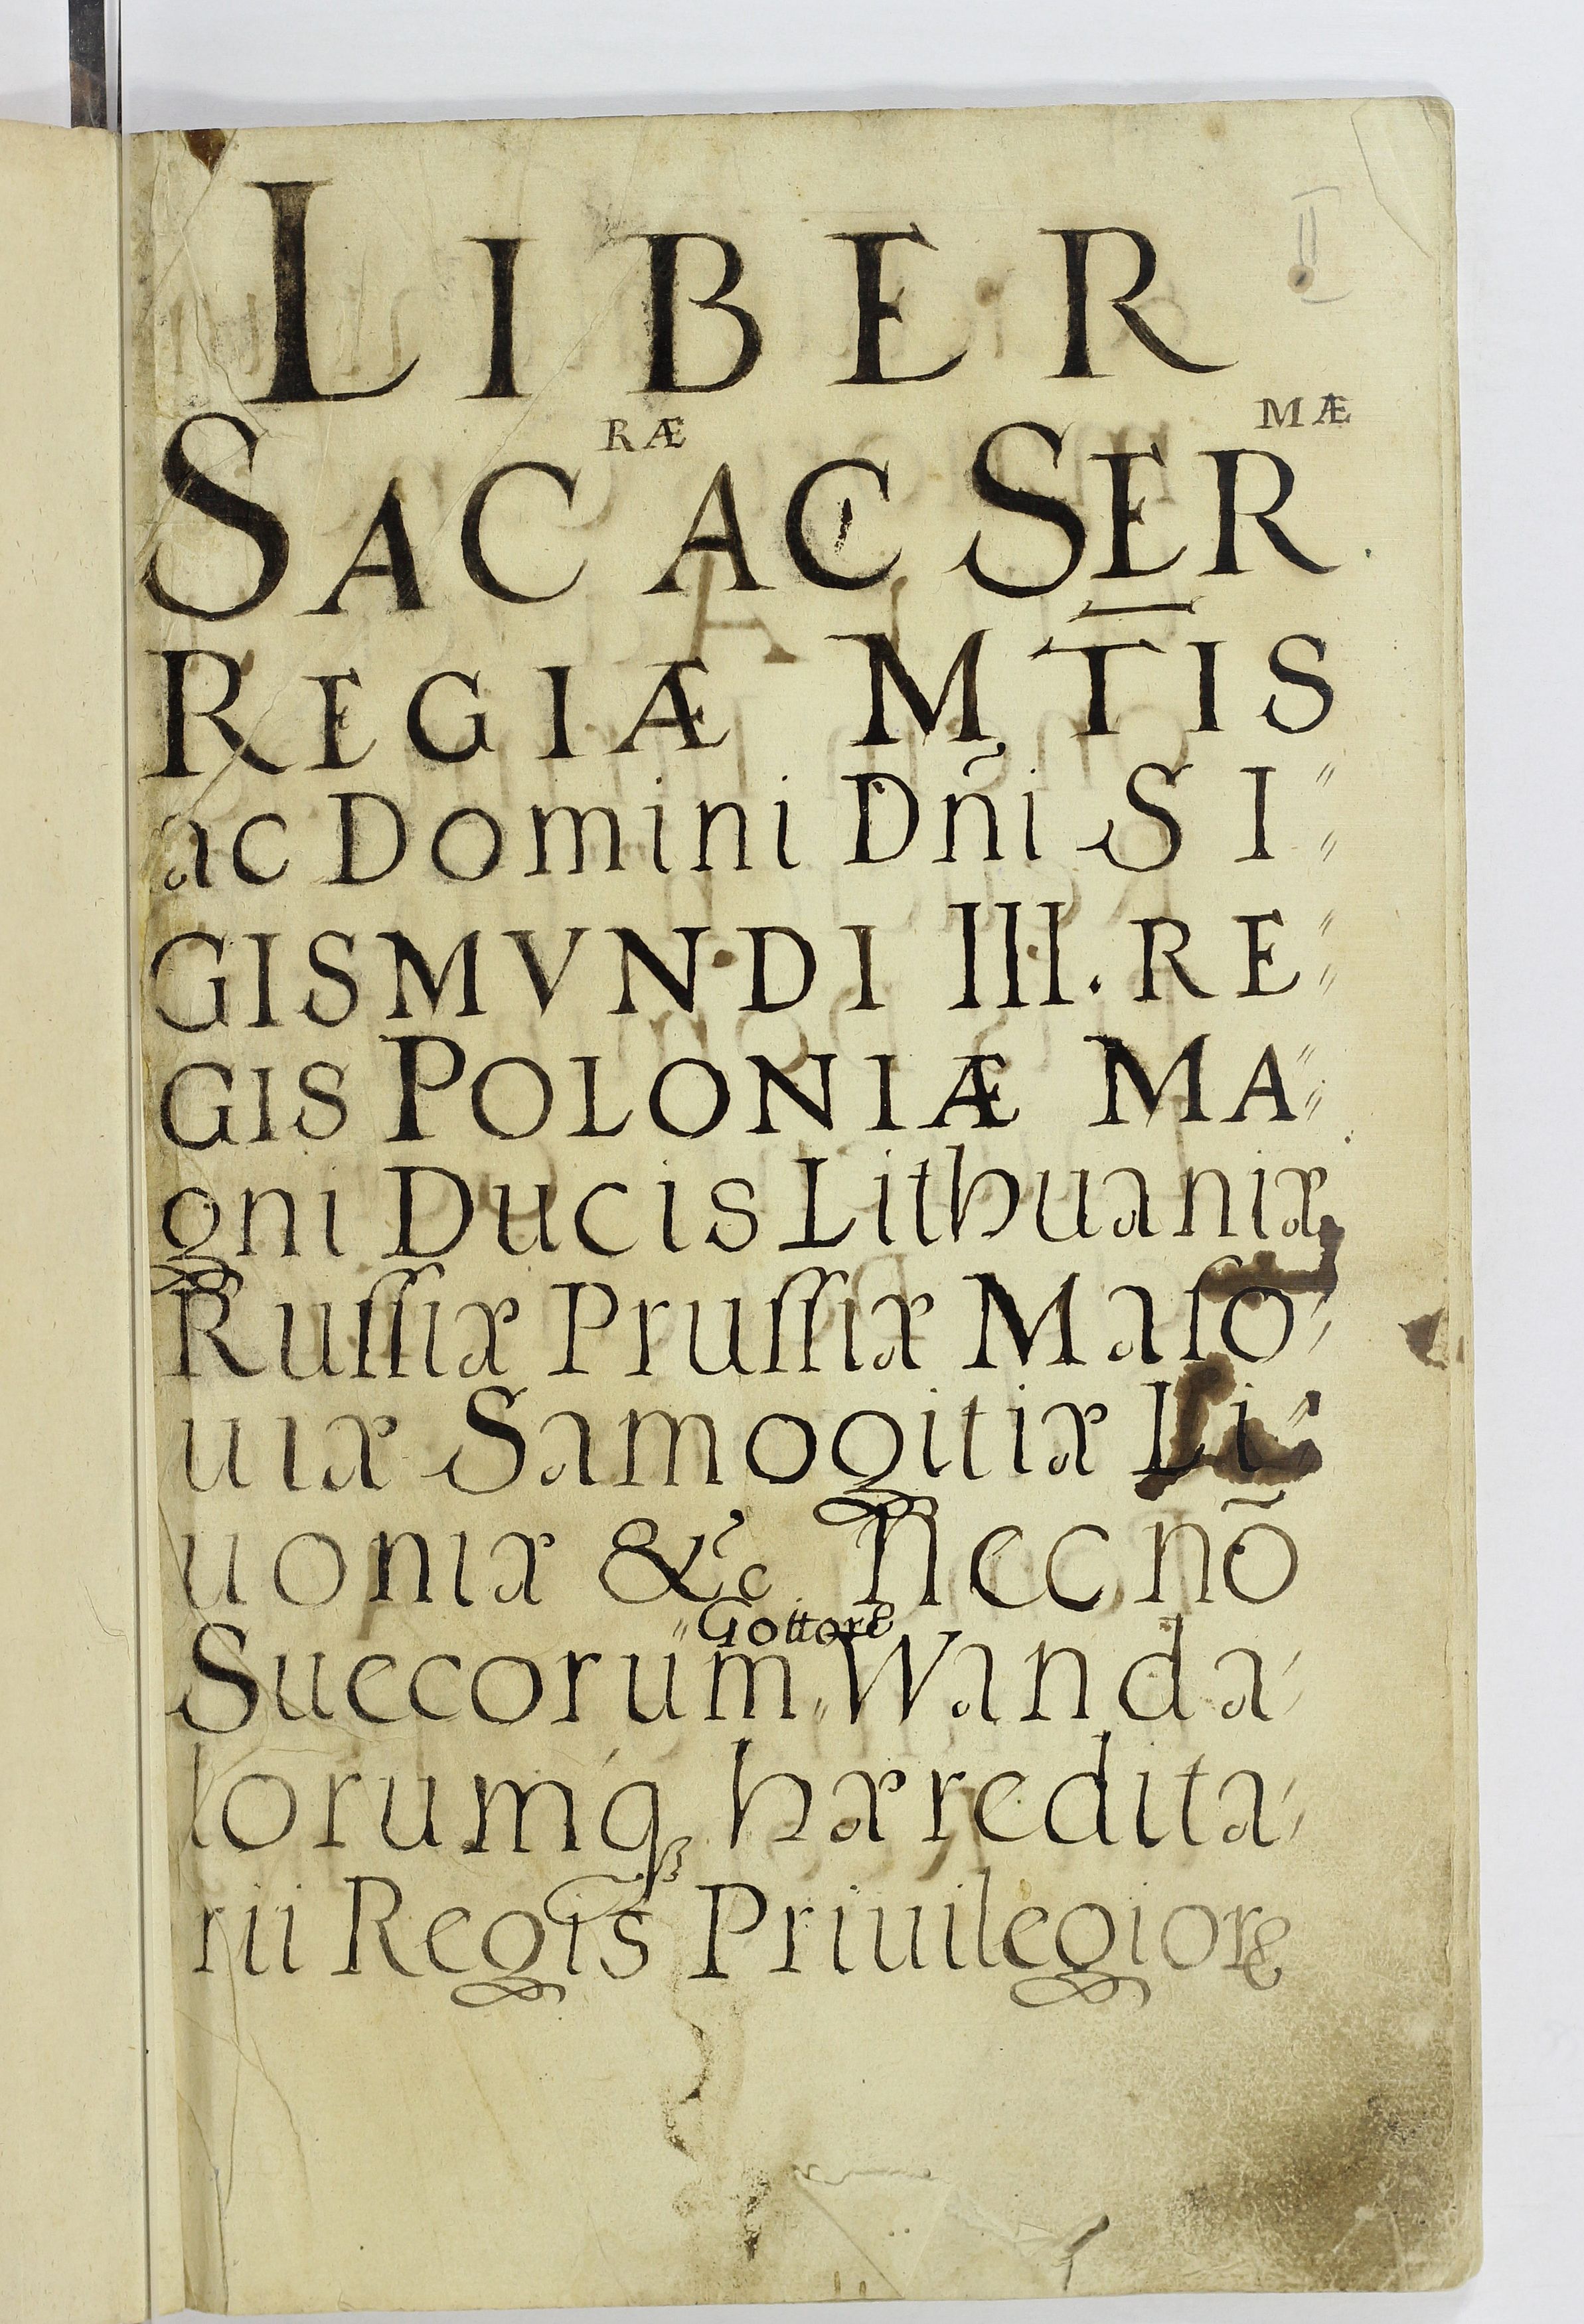 LIBER
SAC RÆ AC SER MÆ
REGIÆ M,T̄IS
ac Domini Dñi SI〃
GISMVNDI III. RE〃
GIS POLONIÆ MA〃
gni Ducis Lithuaniæ
Ruſſiæ Pruſſiæ Maſo〃
uiæ Samogitiæ Li〃
uoniæ &c Necnõ
〃Gottorꝝ
Sueccorum〃 Wanda〃
lorumqꝫ hæredita〃
rii Regis Priuilegiorꝝ